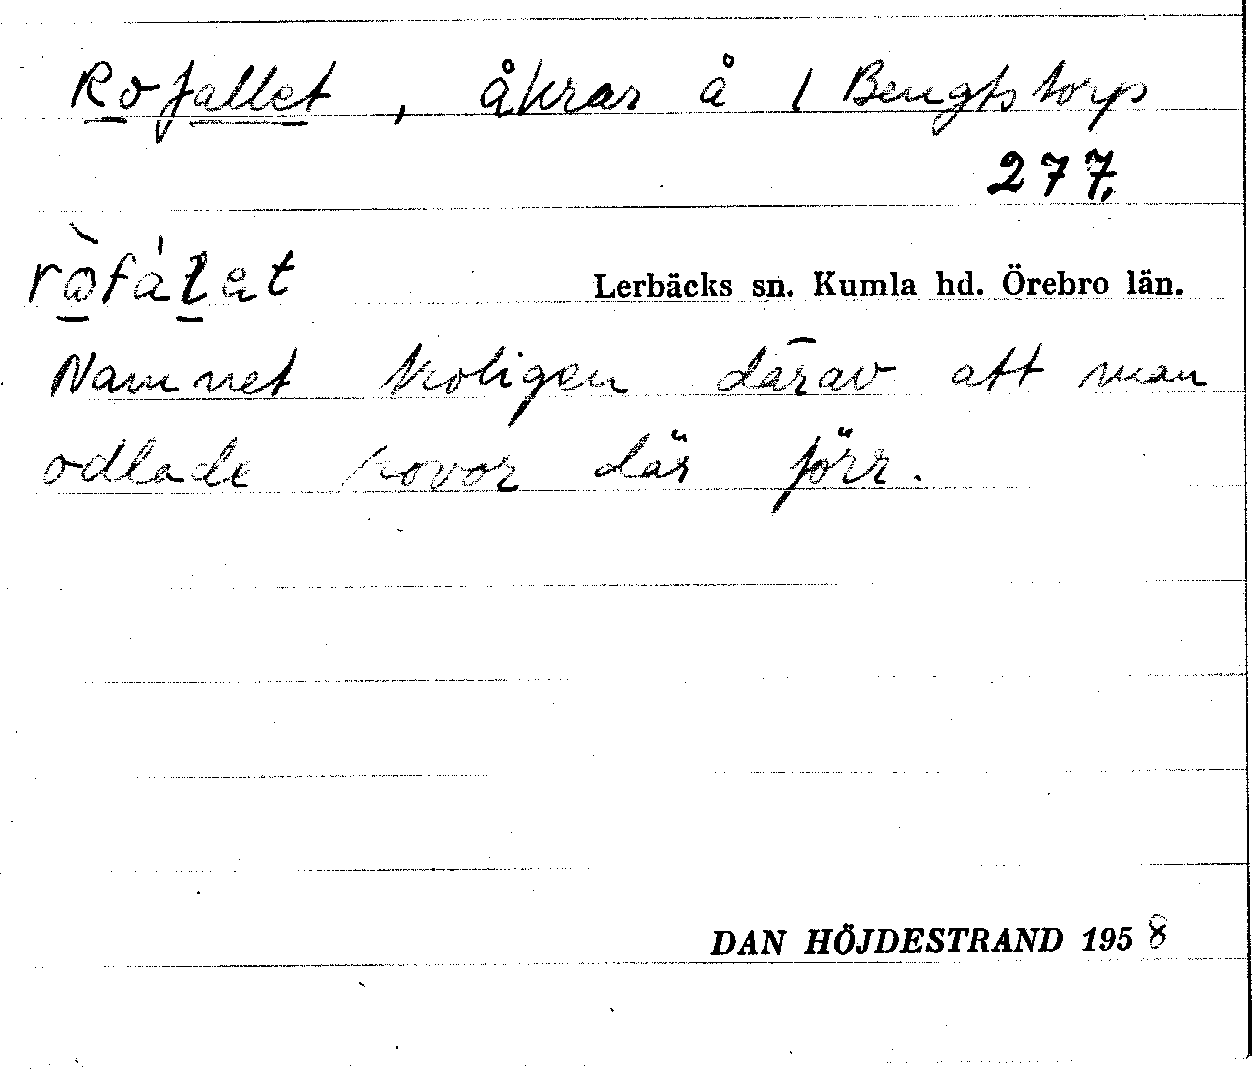 Rofallet, åkrar å 1 Bengtstorp
277,
ròfálat
Lerbäcks sn. Kumla hd. Örebro län.
Namnet troligen därav att man
odlade rovor där förr.
DAN HÖJDESTRAND 1958